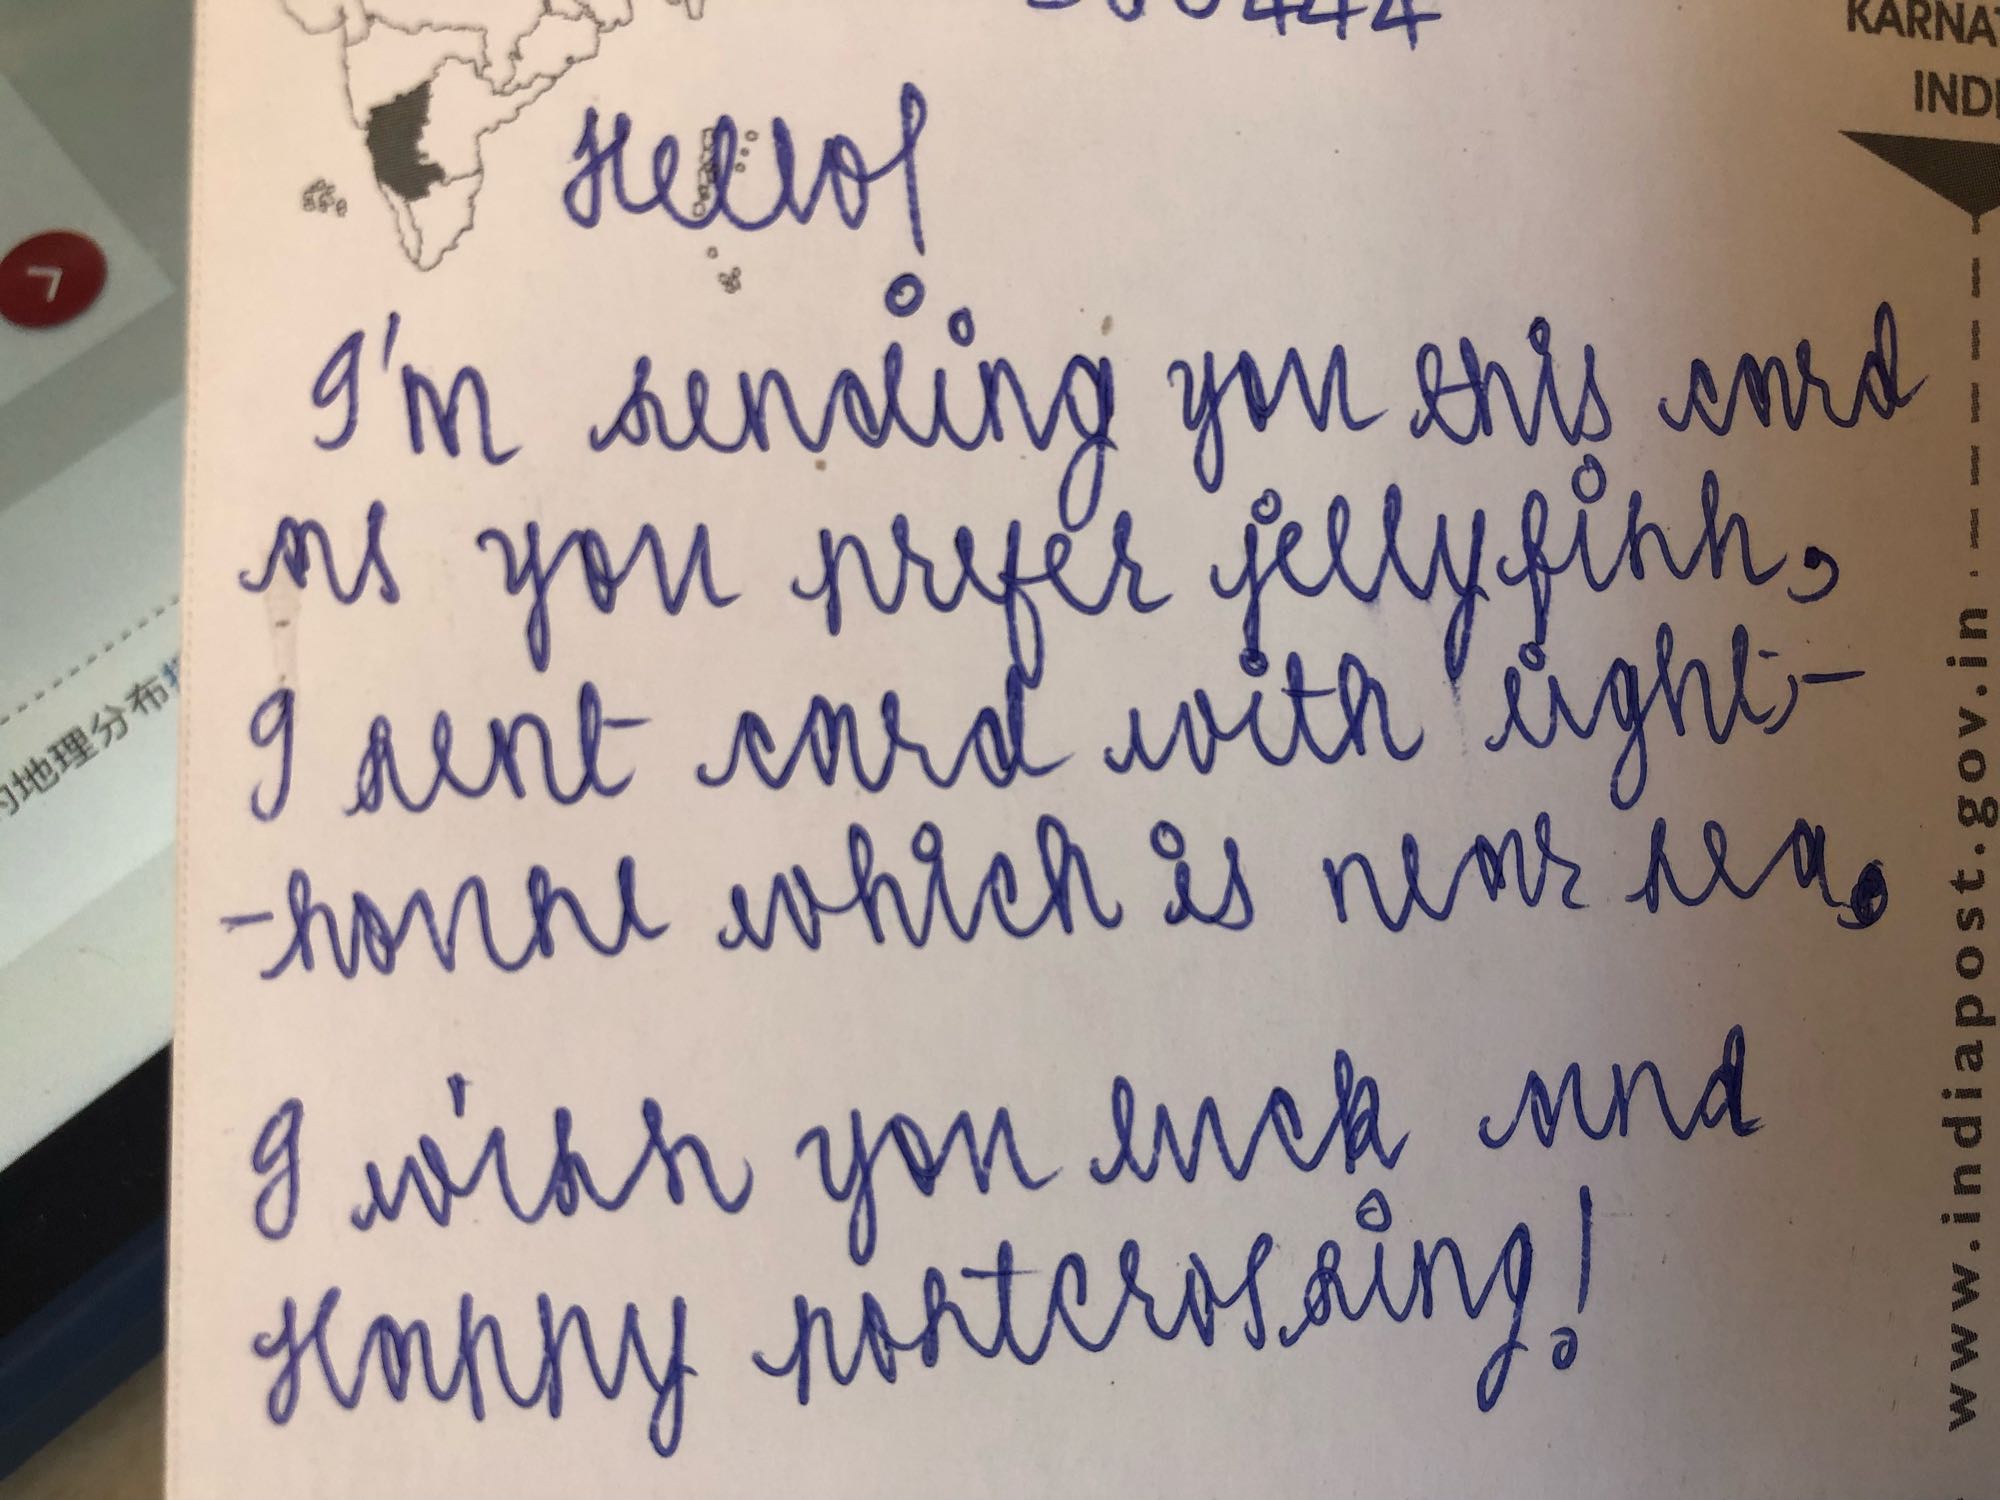 KARNA
INDI
Hello!
I'm sending you this card
as you prefer jellyfish,
I sent card with light-
-house which is near sea.
I wish you luck and
Happy postcrossing!
www.indiapost.gov.in
的地理分布